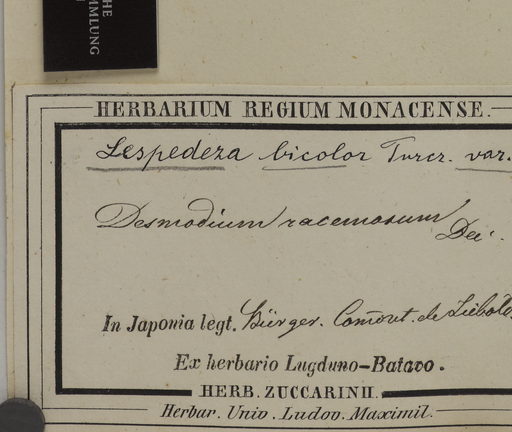 HE
MMLUNG
HERBARIUM REGIUM MONACENSE.
Lespedeza bicolor Turcz. var.
Desmodium racemosum
Dei.
In Japonia legt. Bürger. Com̄out. de Siebold
Ex herbario Lugduno-Batavo.
HERB. ZUCCARINII.
Herbar. Univ. Ludov. Maximil.